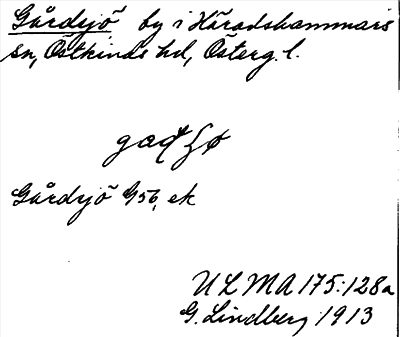 Gårdsjö by i Häradshammars
sn, Östkinds hd, Österg. l.
Gårdsjö G56, ek
ULMA 175:128a
G. Lindberg 1913